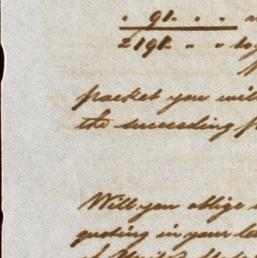 91. . .
£191. . . to
packet you will
the succeeding
Will you oblige
quoting in your